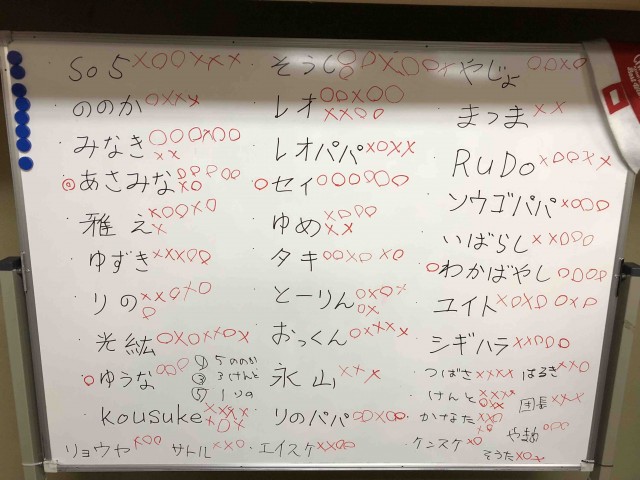 So5 ×○○×××
ののか ○×××
みなき ○○○×○○
××
◎ あさみな ○○○○○
×○
雅え ×○○×○
×
ゆずき ×××○○
りの ××○×○
○
光紘 ○×○××○×
○ ゆうな ○○○
① 5 ののか
③ 3 けんと
⑤ 1 りの
kousuke ××××
×○×
リョウヤ ×○○
サトル ××○
エイスケ ××○○
そうし
レオ ○○×○○
××○○
レオパパ ×○××
○ セイ ○○○○○○
ゆめ ×○○○
××
タキ ○○×○ ×○
とーりん ○×○×
○×
おっくん ○××××
永山 ×××
りのパパ ○○×○×
やじょ ○○×○
まつま ××
RuDo ×○○××
ソウゴパパ ×○○○
いばらし ××○○○
○ わかばやし ○○○○
ユイト ×○×○ ○×○
シギハラ ××○○○
つばさ ××××
はるき ××○
けんと ××××
○××
団長 ×××
かなた ××○
やまぬ ○○○
ケンスケ ×○
そうた ×○×